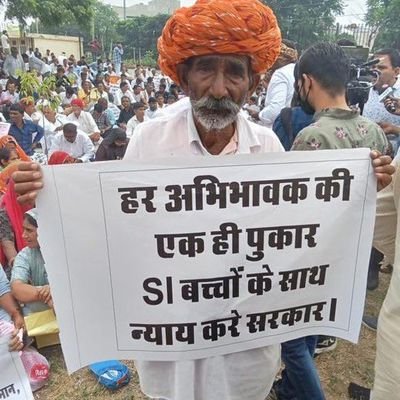 हर अभिभावक की
एक ही पुकार
SI बच्चों के साथ
न्याय करे सरकार।